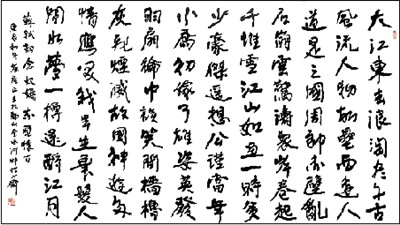 大江東去浪淘盡千古
風流人物故壘西邊人
道是三國周郎赤壁亂
石崩雲驚濤裂岸卷起
千堆雪江山如畫一時多
少豪傑遙想公瑾當年
小喬初嫁了雄姿英發
羽扇綸巾談笑間檣櫓
灰飛煙滅故國神遊多
情應笑我早生華髮人
間如夢一樽還酹江月
蘇軾詞念奴嬌赤壁懷古